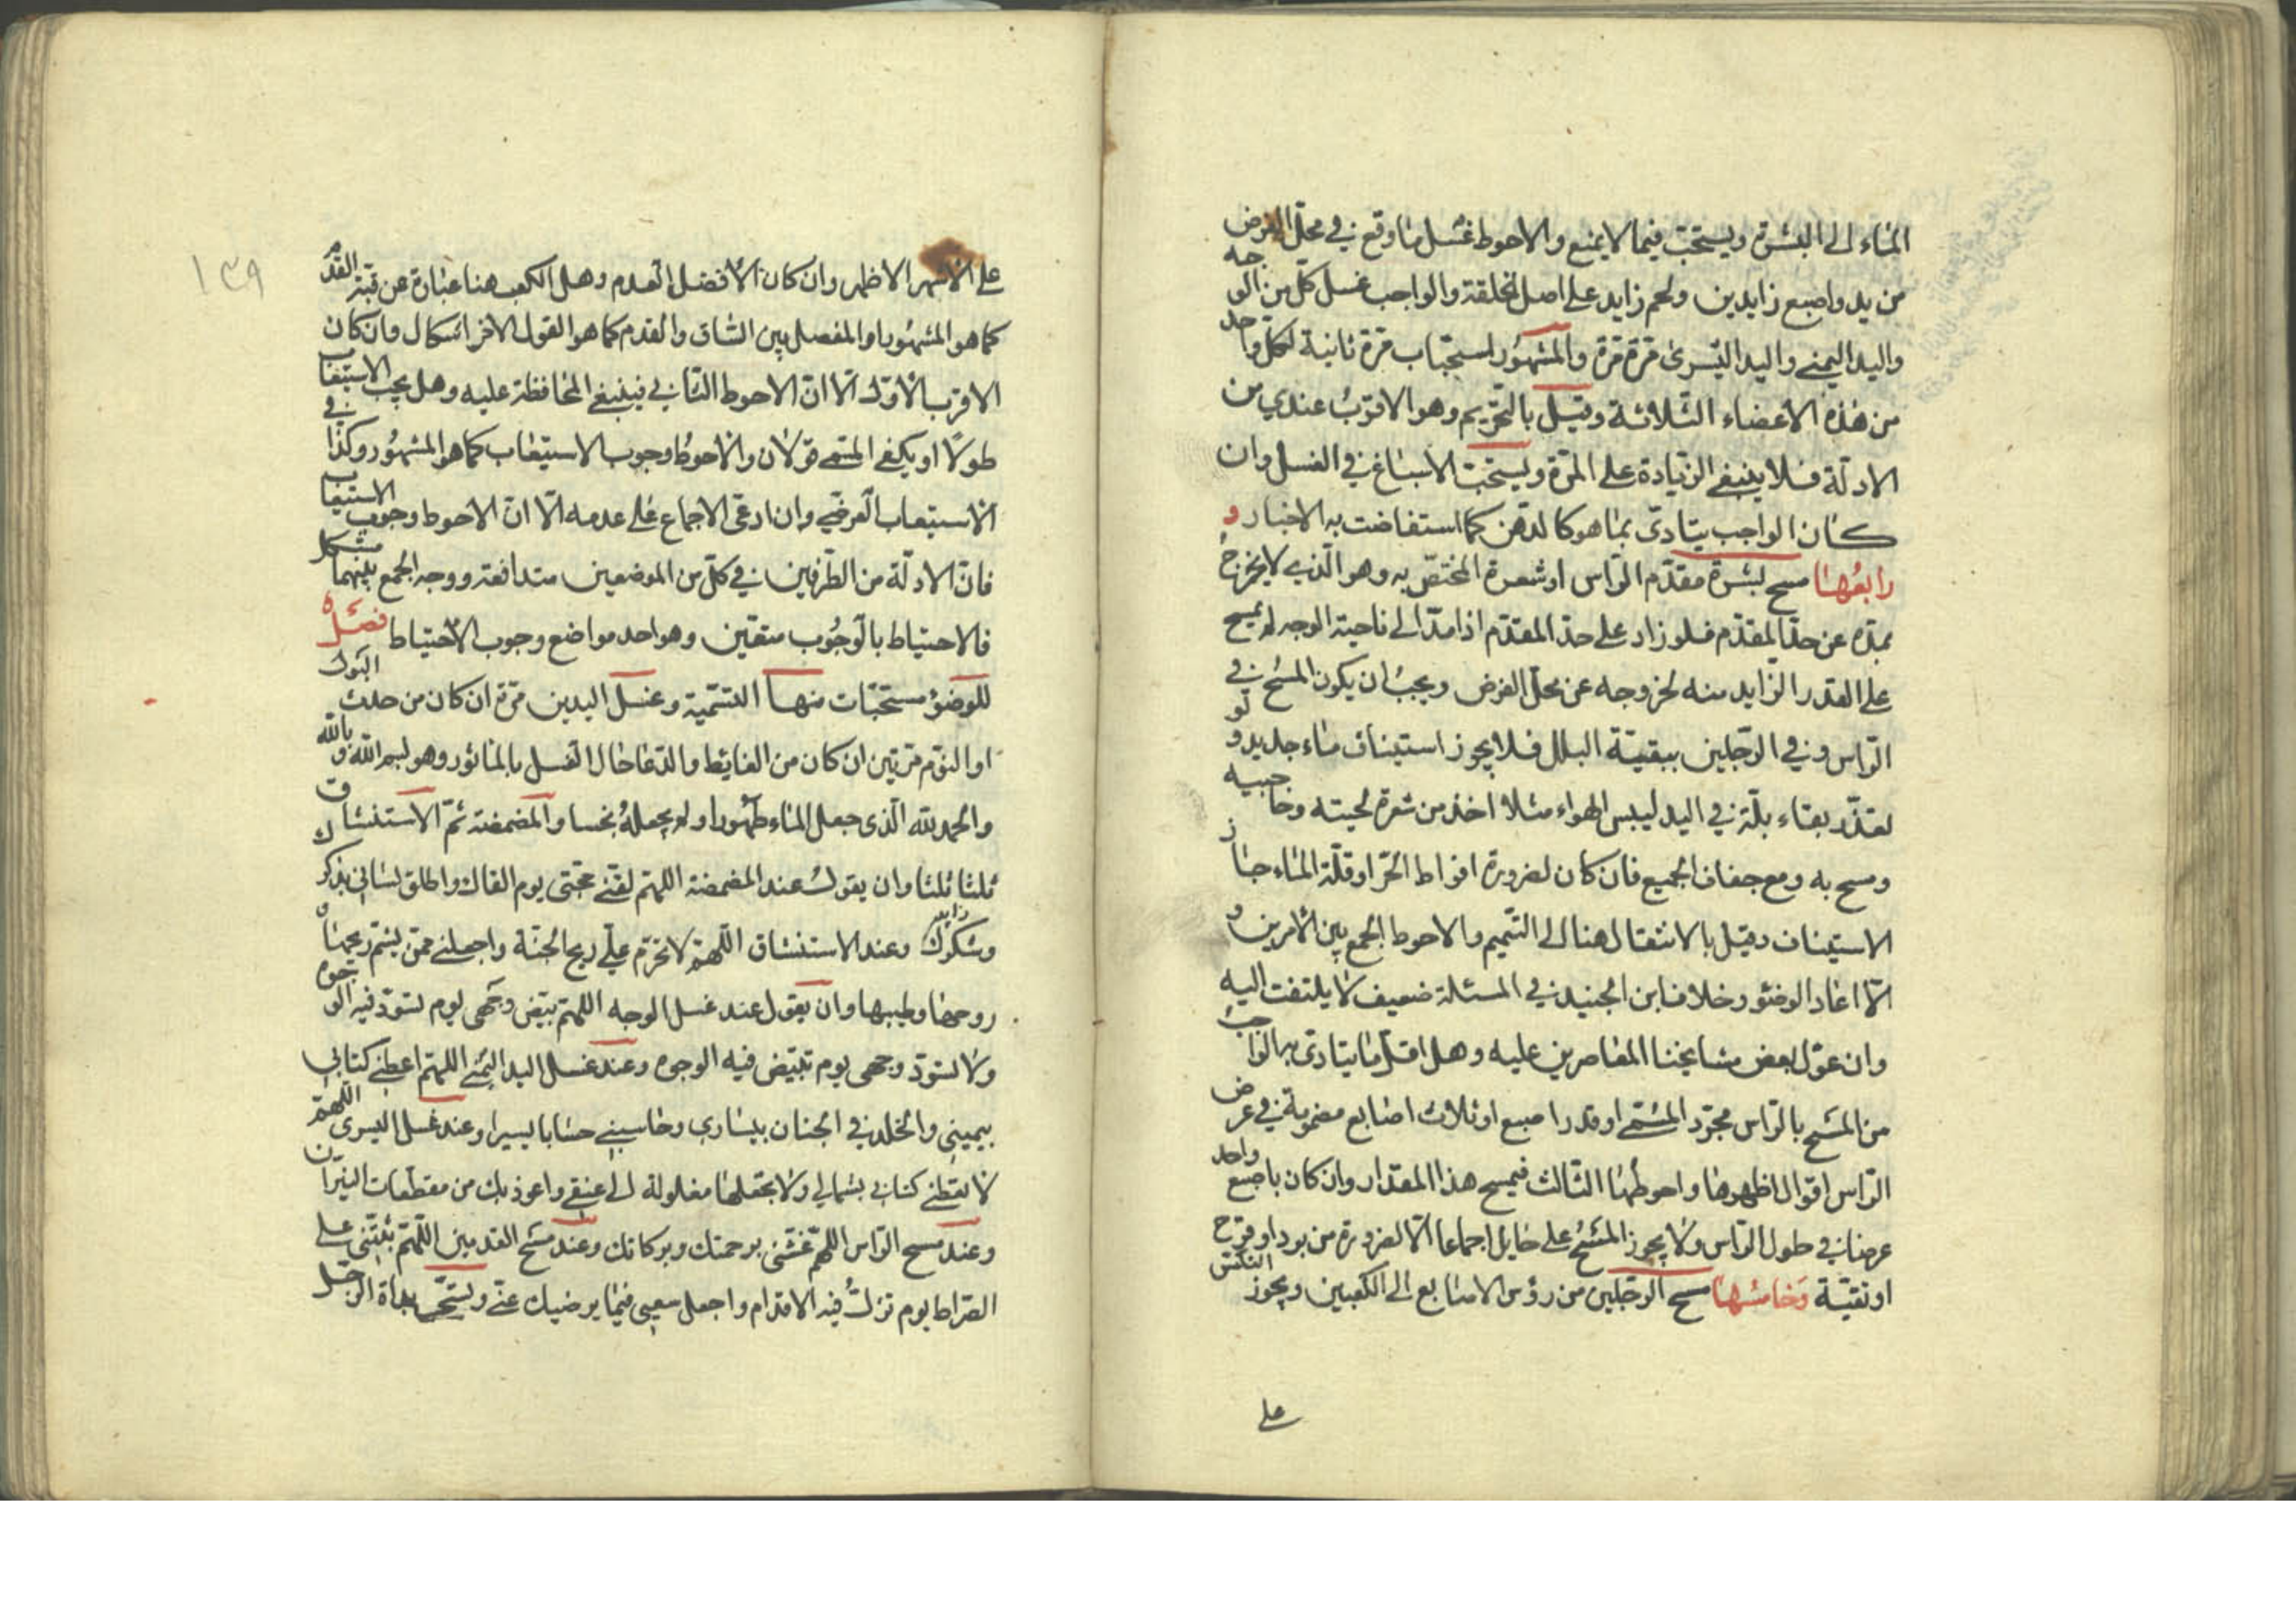 الماء الى البشرة ويستحب فيما لا يمنع والاحوط غسل ما وقع في محل الفرض
من يد واصبع زايدين ولحم زايد على اصل الخلقة والواجب غسل كل من الوجه
واليد اليمنى واليد اليسرى مرة مرة والمشهور استحباب مرة ثانية لكل واحد
من هذه الاعضاء الثلاثة وقيل بالتحريم وهو الاقوب عندي من
الادلة فلا ينبغي الزيادة على المرة ويستحب الاسباغ في الغسل وان
كان الواجب يتادى بما هو كالدهن كما استفاضت به الاخبار و
رابعها مسح بشرة مقدم الراس او شعره المختص به وهو الذي لا يخرج
بمده عن حد المقدم فلو زاد على حد المقدم اذا مد الى ناحية الوجه لم يمسح
على القدر الزايد منه لخروجه عن محل الفرض ويجب ان يكون المسح في
الراس وفي الرجلين ببقية البلل فلا يجوز استيناف ماء جديد ولو
تعذر بقاء بلة في اليد ليبس الهواء مثلا اخذ من شعر لحيته وحاجبيه
ومسح به ومع جفاف الجميع فان كان لضرورة افراط الحر او قلة الماء جاز
الاستيناف وقيل بالانتقال هنا الى التيمم والاحوط الجمع بين الامرين و
الا اعاد الوضوء وخلاف ابن الجنيد في المسئلة ضعيف لا يلتفت اليه
وان عول بعض مشايخنا المعاصرين عليه وهل اقل ما يتادى به الواجب
من المسح بالراس مجرد المسمى او قدر اصبع او ثلاث اصابع مضمومة في عرض
الراس اقوال اظهرها واحوطها الثالث فيمسح هذا المقدار وان كان باصبع واحد
عرضا في طول الراس ولا يجوز المسح على حايل اجماعا الا لضرورة من برد او قرح
او تقية وخامسها مسح الرجلين من رؤس الاصابع الى الكعبين ويجوز النكس
على
١٣٩
على الاشهر الاظهر وان كان الافضل العدم وهل الكعب هنا عبارة عن قبة القدم
كما هو المشهور او المفصل بين الساق والقدم كما هو القول الاخر اشكال وان كان
الاقرب الاول الا ان الاحوط الثاني فينبغي المحافظة عليه وهل يجب الاستيعاب في
طولا او يكفي المسمى قولان والاحوط وجوب الاستيعاب كما هو المشهور وكذا
الاستيعاب العرضي وان ادعى الاجماع على عدمه الا ان الاحوط وجوب الاستيعاب
فان الادلة من الطرفين في كل من الموضعين متدافعة ووجه الجمع بينهما مشكل
فالاحتياط بالوجوب متعين وهو احد مواضع وجوب الاحتياط فصل
للوضوء مستحبات منها التسمية وغسل اليدين مرة ان كان من حدث البول
او النوم مرتين ان كان من الغايط والدعا حال الغسل بالماثور وهو بسم الله وبالله
والحمد لله الذي جعل الماء طهورا ولم يجعله نجسا والمضمضة ثم الاستنشاق
ثلثا ثلثا وان يقول عند المضمضة اللهم لقني حجتي يوم القاك واطلق لساني بذكرك
وشكرك وعند الاستنشاق اللهم لا تحرم علي ريح الجنة واجعلني ممن يشم ريحها و
روحها وطيبها وان يقول عند غسل الوجه اللهم بيض وجهي يوم تسود فيه الوجوه
ولا تسود وجهي يوم تبيض فيه الوجوه وعند غسل اليد اليمنى اللهم اعطني كتابي
بيميني والخلد في الجنان بيساري وحاسبني حسابا يسيرا وعند غسل اليسرى اللهم
لا تعطني كتابي بشمالي ولا تجعلها مغلولة الى عنقي واعوذ بك من مقطعات النيران
وعند مسح الراس اللهم غشني برحمتك وبركاتك وعند مسح القدمين اللهم ثبتني على
الصراط يوم تزل فيه الاقدام واجعل سعيي فيما يرضيك عني ويستحب بداة الرجل